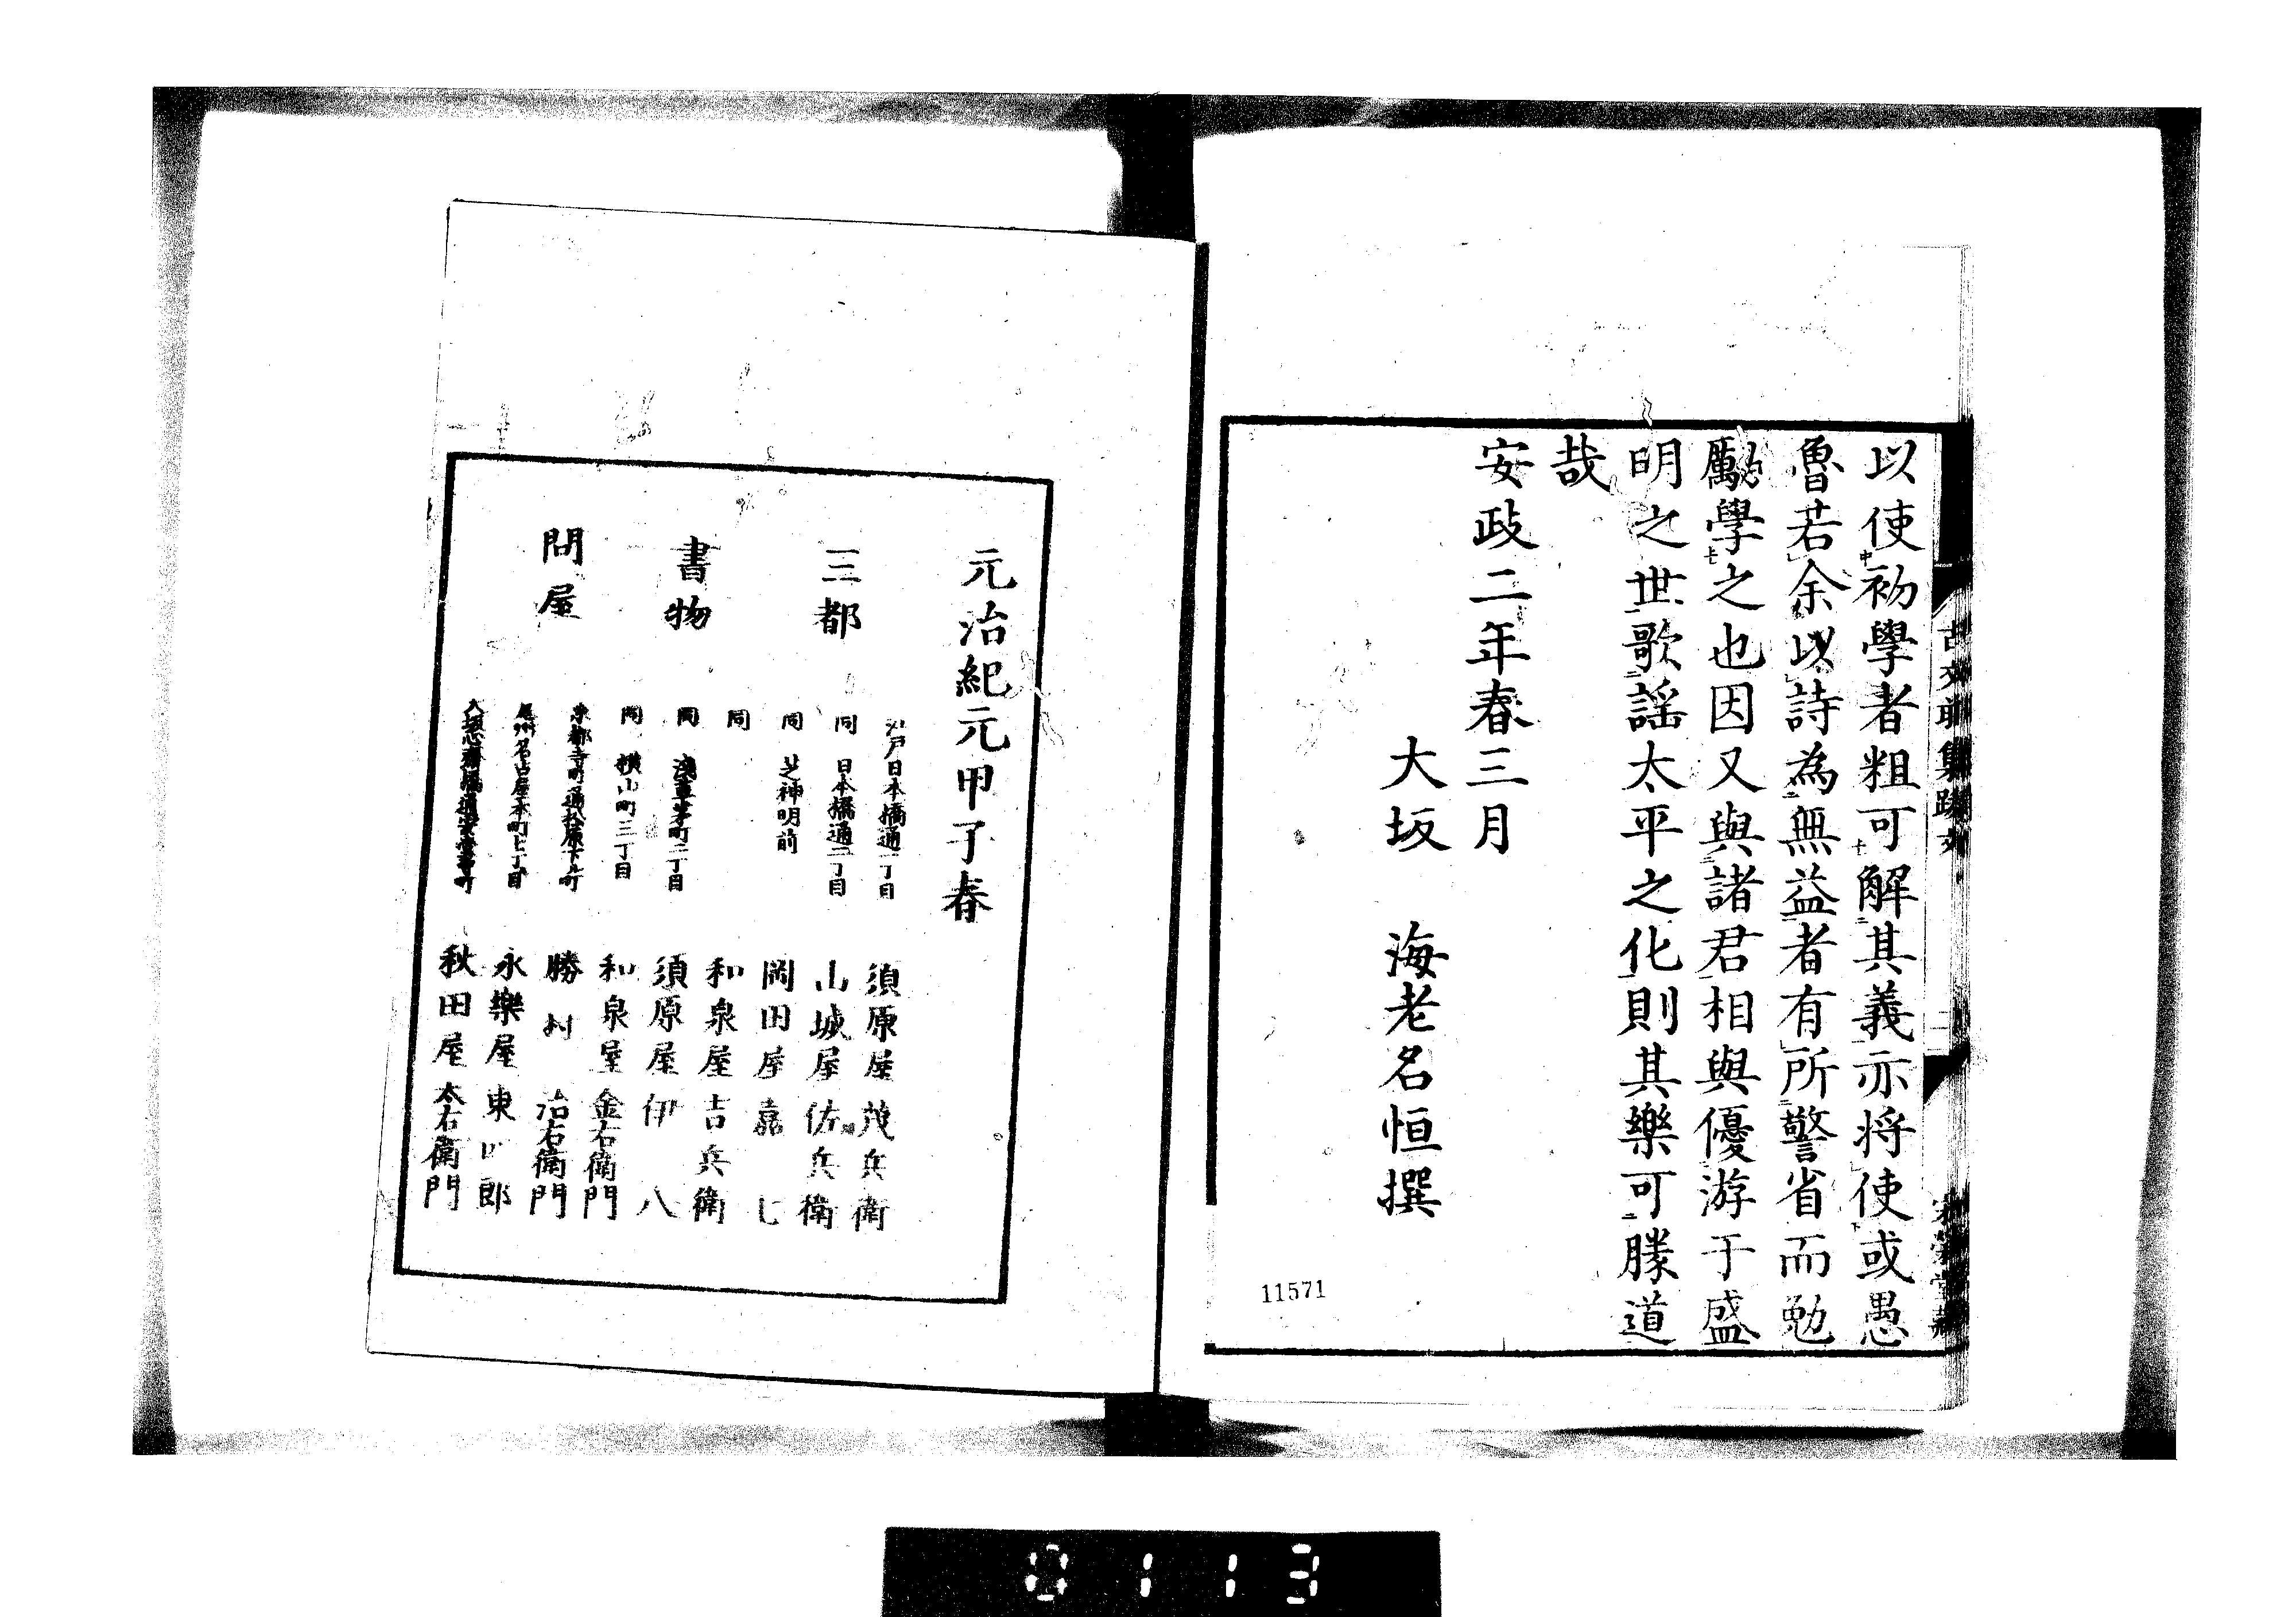 以使初學者粗可解其義亦将使或愚
魯若余以詩為無益者有所警省而勉
勵學之也因又與諸君相與優游于盛
明之世歌謡太平之化則其樂可勝道
哉
安政二年春三月
大坂 海老名恒撰
11571
元治紀元甲子春
三都
書物
問屋
江戸日本橋通一丁目 須原屋茂兵衛
同 日本橋通二丁目 山城屋佐兵衛
同 芝神明前 岡田屋嘉七
同 和泉屋吉兵衛
同 淺草茅町二丁目 須原屋伊八
同 横山町三丁目 和泉屋金右衛門
京都寺町通松原下ル町 勝村治右衛門
尾州名古屋本町七丁目 永樂屋東四郎
大坂心齋橋通安堂寺町 秋田屋太右衛門
0113